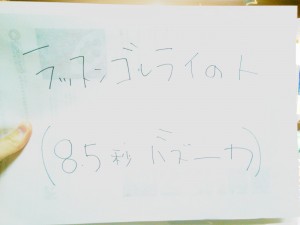 ラッスンゴレライの人
(85秒バズーカ)